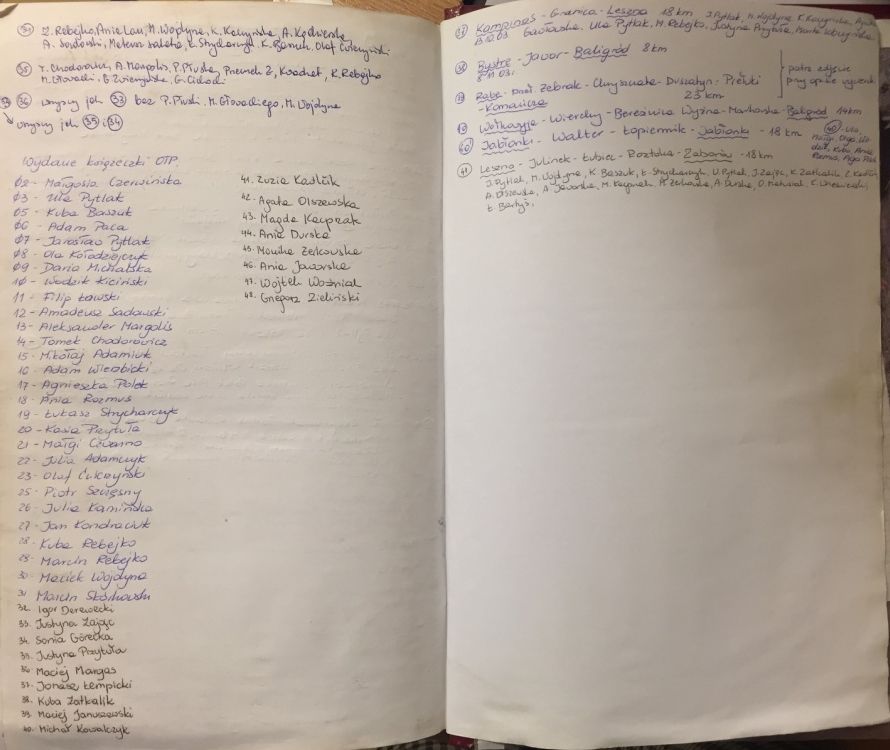 34 Z. Rebejko, Ania Lau, M. Wojdyna, K. Kaczyńska, A. Kędzierska
A. Sadowski, Mateusz Łabęta, Ł. Strycharczyk, K. Banuch, Olaf Ćulczyński
35 T. Chodorowicz, A. Margolis, P. Pluska, Przemek Z, Kwachet, K. Rebejko
M. Głowacki, G. Zwierzyński, G. Cichocki
36 wszyscy jak 33 bez P. Pluski, M. Głowackiego, M. Wojdyna
wszyscy jak 35 i 34
Wydane książeczki OTP
02 - Małgosia Czerwińska
03 - Ula Pytlak
05 - Kuba Baszuk
06 - Adam Paca
07 - Jarosław Pytlak
08 - Ola Kołodziejczyk
09 - Daria Michalska
10 - Wodzik Kiciński
11 - Filip Ławski
12 - Amadeusz Sadowski
13 - Aleksander Margolis
14 - Tomek Chodorowicz
15 - Mikołaj Adamiuk
16 - Adam Wierzbicki
17 - Agnieszka Polek
18 - Ania Rozmus
19 - Łukasz Strycharczyk
20 - Kasia Przytuła
21 - Małgi Czwarno
22 - Julia Adamczyk
23 - Olaf Ćulczyński
25 - Piotr Szczęsny
26 - Julia Kamińska
27 - Jan Kondraciuk
28 - Kuba Rebejko
29 - Marcin Rebejko
30 - Maciek Wojdyna
31 Marcin Skórkowski
32. Igor Derewecki
33. Justyna Zając
34. Sonia Górecka
35. Justyna Przytuła
36. Maciej Margas
37. Jonasz Łempicki
38. Kuba Zatkalik
39. Maciej Januszewski
40. Michał Kowalczyk
41. Zuzia Kadlčik
42. Agata Olszewska
43. Magda Kacprzak
44. Ania Durska
45. Monika Żerkowska
46. Ania Jaworska
47. Wojtek Woźniak
48. Grzegorz Zieliński
37 Kampinos - Granica - Leszno 18 km J. Pytlak, M. Wojdyna, K. Kaczyńska,
12.10.03 Gawłowska, Ula Pytlak, M. Rebejko, Justyna Przytuła,
38 Bystre - Jawor - Baligród 8 km
8-11.03.
39 Rabe - przeł. Żebrak - Chryszczata - Duszatyn - Prełuki
- Komańcza 23 km
potrz. zdjęcie
przy opisie wycieczki
40 Wołkowyja - Wierchy - Bereźnica Wyżna - Markowska - Baligród 14 km
Jabłonki - Walter - Łopiennik - Jabłonki - 18 km
41 Leszno - Julinek - Łubiec - Roztoka - Zaborów - 18 km
J. Pytlak, M. Wojdyna, K. Baszuk, Ł. Strycharczyk, U. Pytlak, J. Zając, K. Zatkalik, Z. Kadlčik
A. Olszewska, A. Jaworska, M. Kacprzak, M. Żerkowska, A. Durska,
Ł. Bartyś,